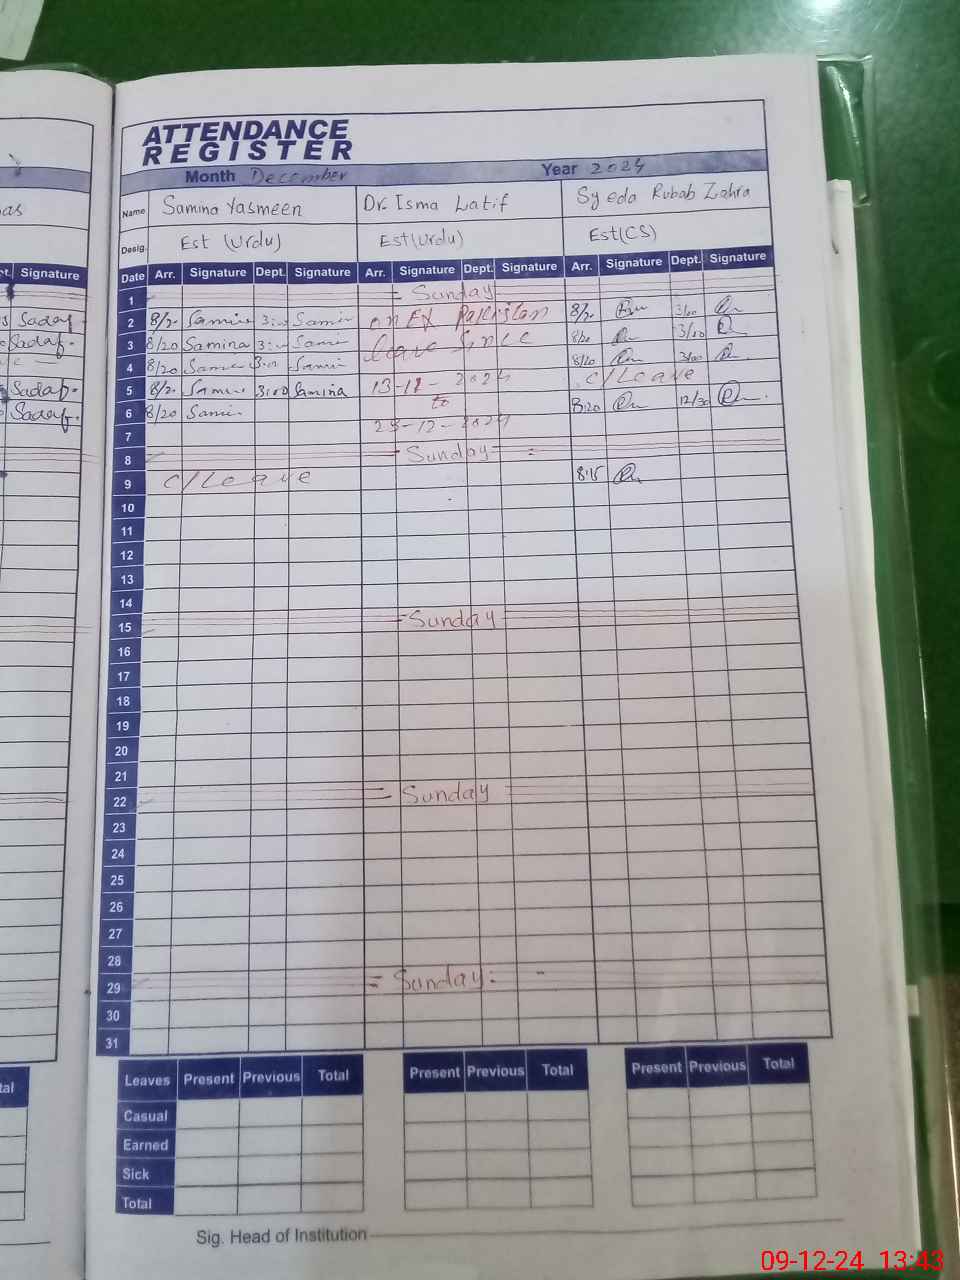 ATTENDANCE
REGISTER
Month December Year 2024
Name Samina Yasmeen Dr. Isma Latif Syeda Rubab Zahra
Desig. Est (Urdu) Est(Urdu) Est(CS)
Signature
Date Arr. Signature Dept. Signature Arr. Signature Dept. Signature Arr. Signature Dept. Signature
1 Sunday
Sadaf
2 8/20 Samina 3:00 Samin on EX Pakistan 8/20 3/00
Sadaf.
3 8/20 Samina 3:00 Samin leave Since 8/20 3/00
4 8/20 Samin 3:00 Samin 8/20 3/00
Sadaf.
5 8/20 Samina 3:00 Samina 13-11-2024 C/Leave
Sadaf.
6 8/20 Samin to 8:20 12/30
7 28-12-2024
8 Sunday
9 C/Leave 8:15
10
11
12
13
14
15 Sunday
16
17
18
19
20
21
22 Sunday
23
24
25
26
27
28
29 Sunday
30
31
Leaves Present Previous Total Present Previous Total Present Previous Total
Casual
Earned
Sick
Total
Sig. Head of Institution
09-12-24 13:43